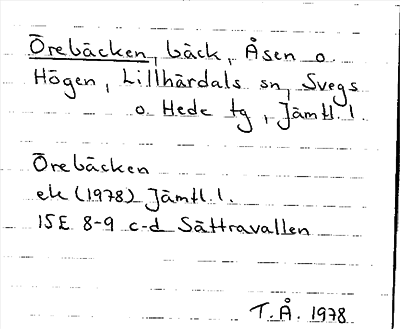 Örebäcken, bäck, Åsen o.
Högen, Lillhärdals sn, Svegs
o. Hede tg, Jämtl. l.
Örebäcken
ek (1978) Jämtl. l.
15E 8-9 c-d Sättravallen
T.Å. 1978